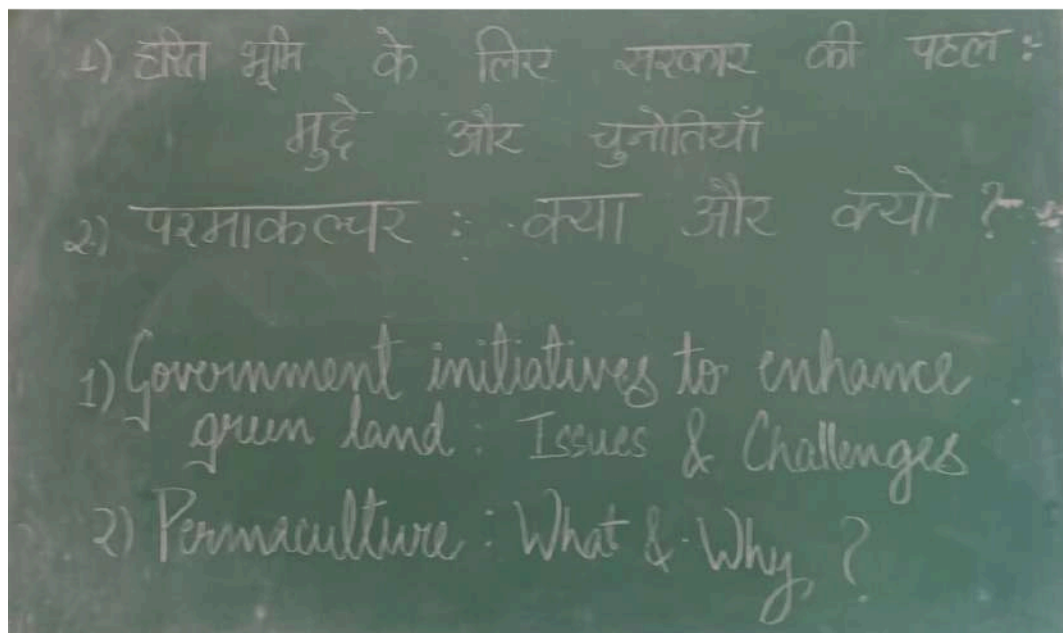 1) हरित भूमि के लिए सरकार की पहल :-
मुद्दे और चुनोतियाँ
2) परमाकल्चर : क्या और क्यो ?
1) Government initiatives to enhance
green land : Issues & Challenges
2) Permaculture : What & Why ?